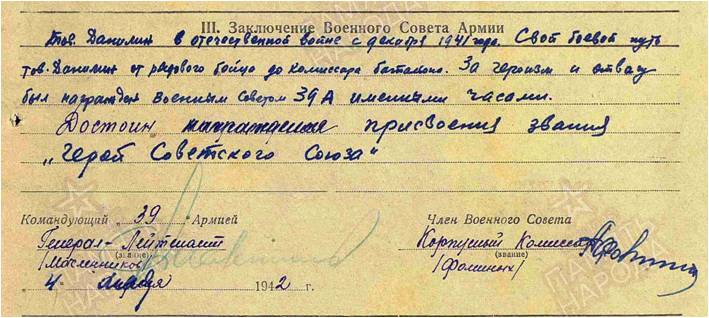 III. Заключение Военного Совета Армии
Тов. Данилин в отечественной войне с декабря 1941 года. Свой боевой путь
тов. Данилин от рядового бойца до комиссара батальона. За героизм и отвагу
был награжден военным советом 39А именными часами.
Достоин награждения присвоения звания
„Герой Советского Союза“
Командующий 39 Армией
Генерал-Лейтенант
(звание)
/Масленников/
4 апреля 1942 г.
Член Военного Совета
Корпусный Комиссар
(звание)
/Фоминых/